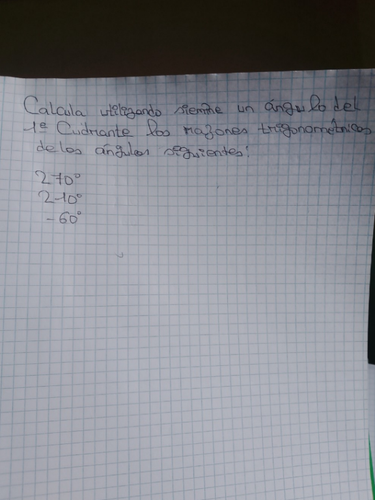 Calcula utilizando siempre un ángulo del
1º Cudrante las razones trigonométricas
de los ángulos siguientes:
270°
210°
-60°